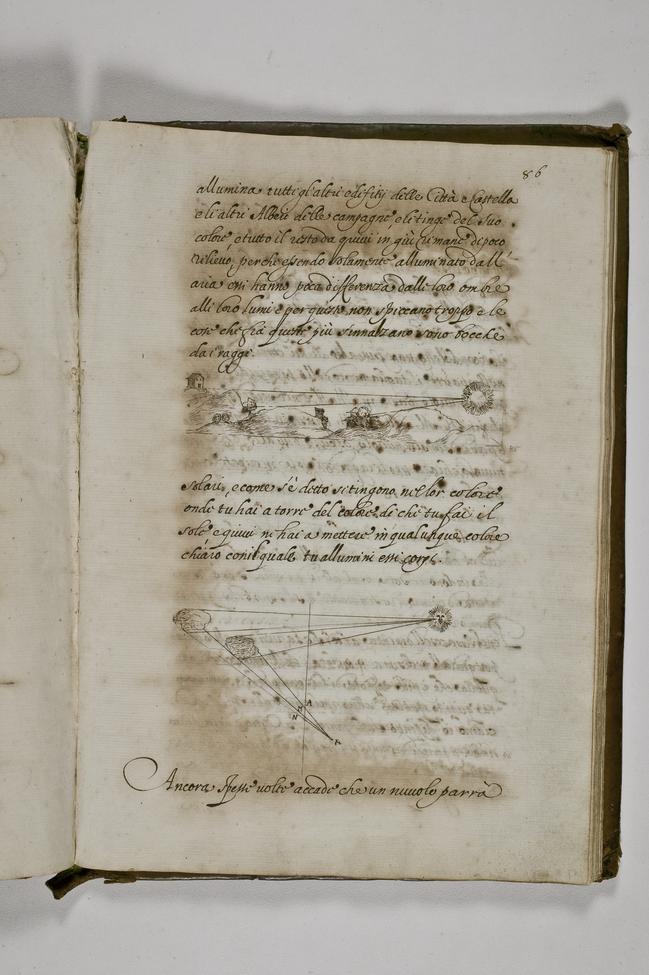 86
allumina tutti gl'altri edifitij delle Città e Castella
e li altri Alberi delle campagne, e li tinge del suo
colore, e tutto il resto da quivi in giù rimane di poco
rilievo, perche essendo solamente alluminato dall'
aria essi hanno poca differenza dalle loro ombre
alli loro lumi e per questo non spiccano troppo e le
cose che frà queste più s'innalzano sono tocche
da i raggi
solari, e come s'è detto si tingono nel lor colore
onde tu hai a torre del colore di che tu fai il
sole e quivi ne hai a mettere in qualunque colore
chiaro con il quale tu allumini essi corpi.
A
M
N
Ancora spesse volte accade che un nuvolo parrà